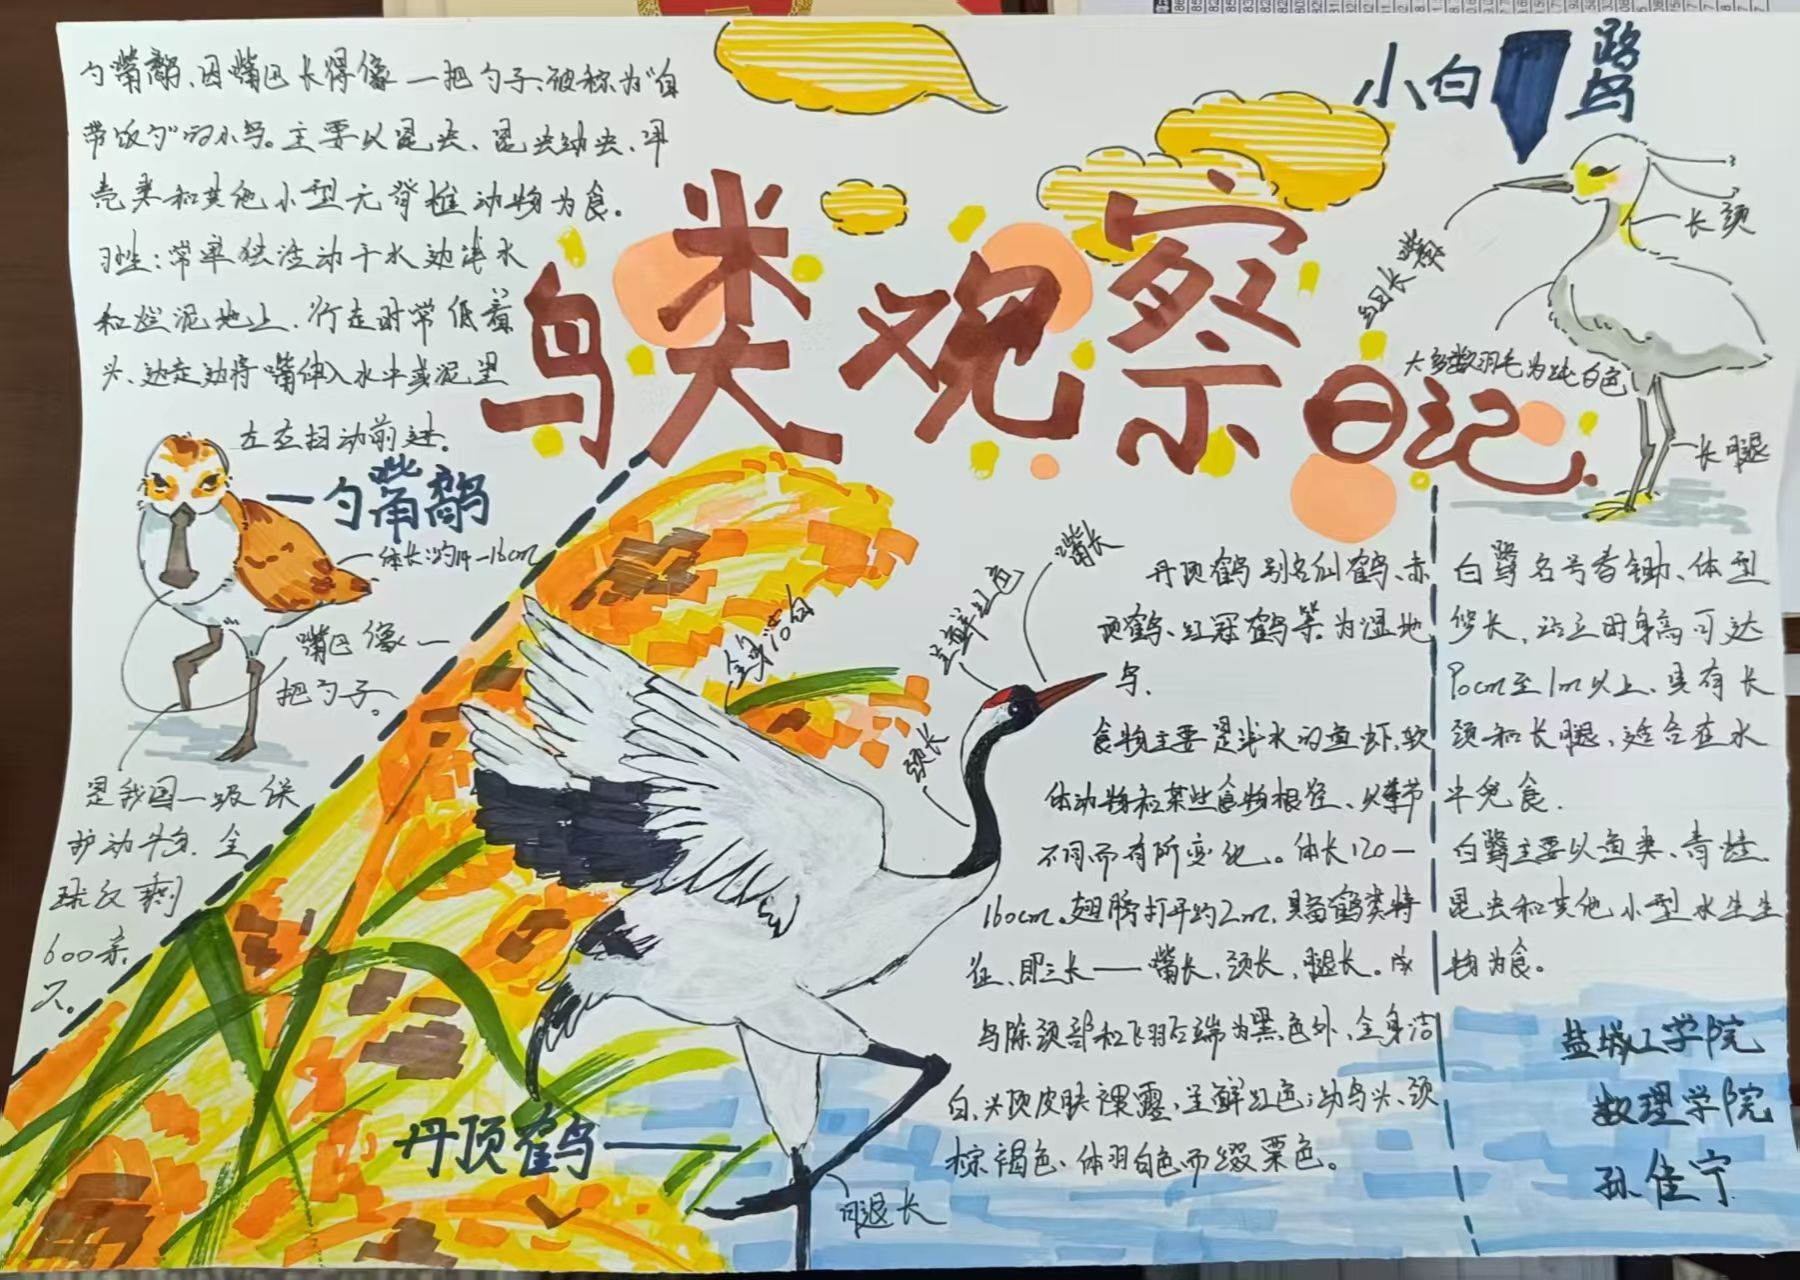 勺嘴鹬、因嘴巴长得像一把勺子、被称为"自
带饭勺"的小鸟。主要以昆虫、昆虫幼虫、甲
壳类和其他小型无脊椎动物为食。
习性：常单独活动于水边浅水
和烂泥地上、行走时常低着
头、边走边将嘴伸入水中或泥里
左右扫动前进。
勺嘴鹬
体长：约14-16cm
嘴巴像一
把勺子。
是我国一级保
护动物、全
球仅剩
600余
只。
鸟类观察日记
小白鹭
细长嘴
长颈
大多数羽毛为纯白色
长腿
全身洁白
呈鲜红色
嘴长
颈长
丹顶鹤
腿长
丹顶鹤别名仙鹤、赤
顶鹤、红冠鹤等为湿地
鸟.
食物主要是浅水的鱼虾、软
体动物和某些植物根茎、以季节
不同而有所变化。体长120-
160cm。翅膀打开约2m、具备鹤类特
征、即三长——嘴长、颈长、腿长。成
鸟除颈部和飞羽后端为黑色外、全身洁
白、头顶皮肤裸露、呈鲜红色；幼鸟头、颈
棕褐色、体羽白色而缀栗色。
白鹭名号春锄、体型
修长、站立时身高可达
90cm至1m以上、具有长
颈和长腿、适合在水
中觅食.
白鹭主要以鱼类、青蛙、
昆虫和其他小型水生生
物为食。
盐城工学院
数理学院
孙佳宁